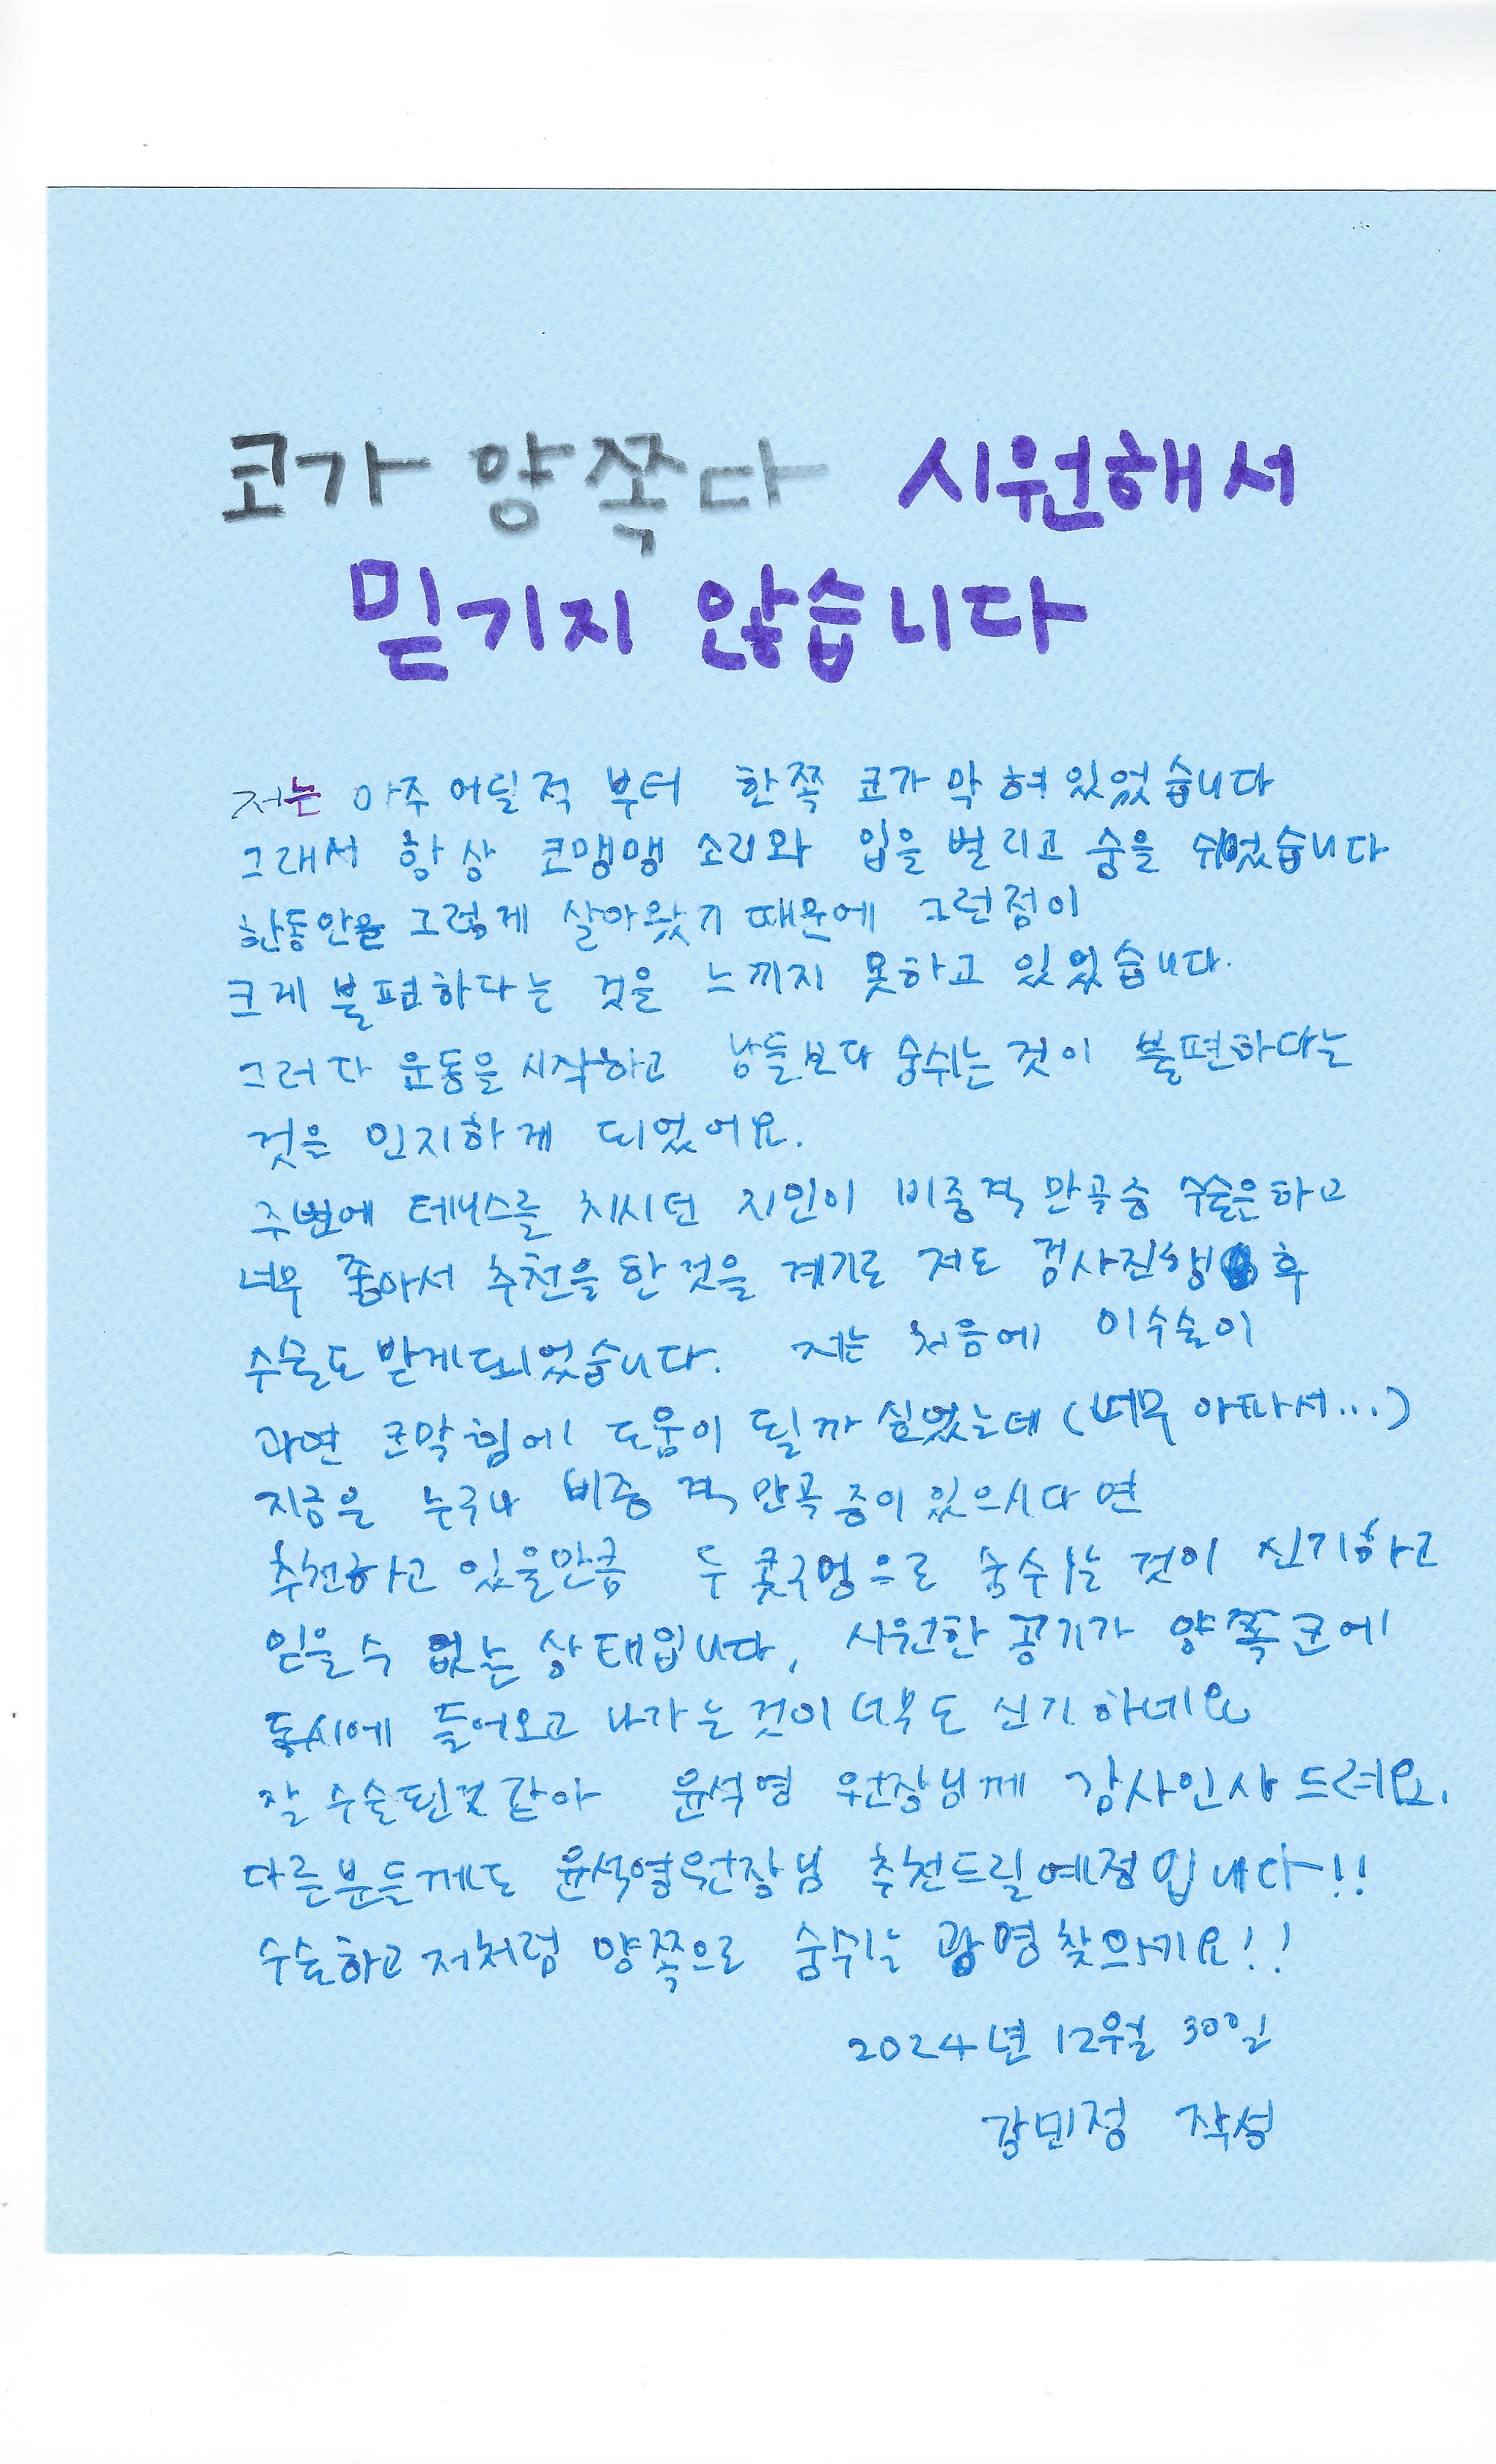 코가 양쪽다 시원해서
믿기지 않습니다
저는 아주 어릴적 부터 한쪽 코가 막혀있었습니다
그래서 항상 코맹맹 소리와 입을 벌리고 숨을 쉬었습니다
한동안을 그렇게 살아왔기 때문에 그런점이
크게 불편하다는 것을 느끼지 못하고 있었습니다.
그러다 운동을 시작하고 남들보다 숨쉬는 것이 불편하다는
것을 인지하게 되었어요.
주변에 테니스를 치시던 지인이 비중격 만곡증 수술은하고
너무 좋아서 추천을 한 것을 계기로 저도 검사진행 후
수술도 받게되었습니다. 저는 처음에 이수술이
과연 코막힘에 도움이 될까 싶었는데 (너무 아파서...)
지금은 누구나 비중격 만곡증이 있으시다면
추천하고 있을만큼 두 콧구멍으로 숨쉬는 것이 신기하고
믿을수 없는 상태입니다, 시원한 공기가 양쪽 코에
동시에 들어오고 나가는 것이 너무도 신기하네요
잘 수술된것 같아 윤석영 원장님께 감사인사 드려요.
다른분들께도 윤석영원장님 추천드릴예정입니다!!
수술하고 저처럼 양쪽으로 숨쉬는 광명 찾으세요!!
2024년 12월 30일
강민정 작성